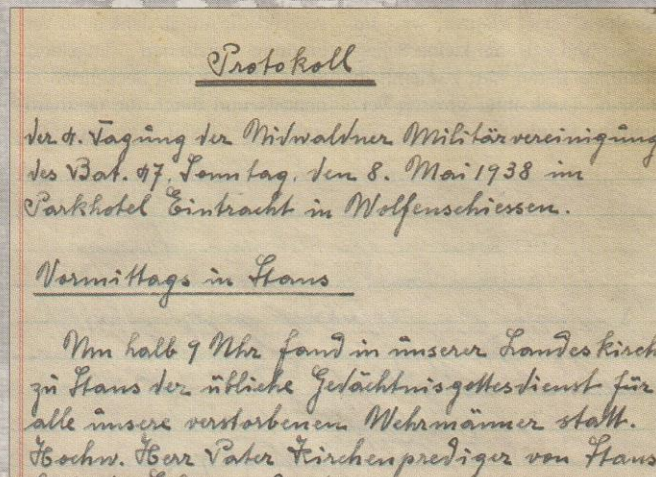 Protokoll
der 4. Tagung der Nidwaldner Militärvereinigung
des Bat. 47, Sonntag, den 8. Mai 1938 im
Parkhotel Eintracht in Wolfenschiessen.
Vormittags in Stans
Um halb 9 Uhr fand in unserer Landeskirch
zu Stans der übliche Gedächtnisgottesdienst für
alle unsere verstorbenen Wehrmänner statt.
Hochw. Herr Pater Kirchenprediger von Stans